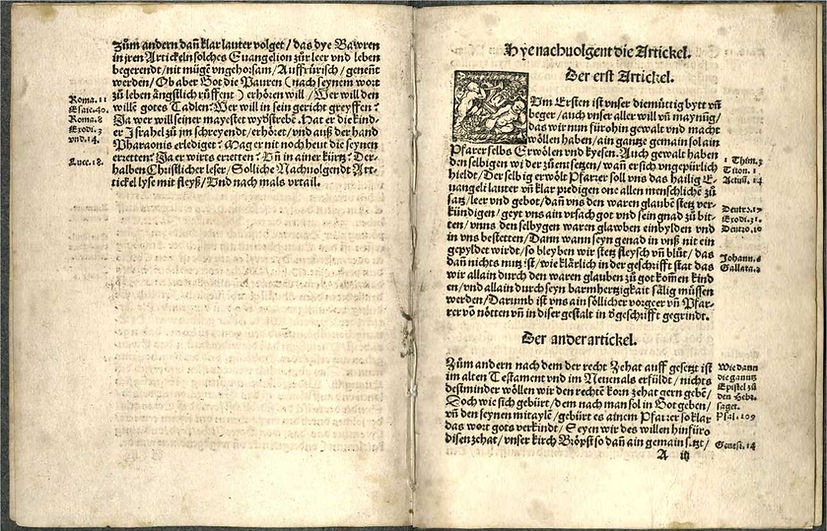 Zům andern dañ klar lauter volget/das dye Bawren
in jren Artickeln solches Euangelion zůr leer vnd leben
begerendt/nit mügē vngehoꝛsam/Auffrürisch/geneñt
werden/Ob aber Got die Pauren (nach seynem woꝛt
zů leben ängstlich růffent) erhöꝛen will/Wer will den
willē gotes Tadlen? Wer will in sein gericht greyffen?
Ja wer will seiner mayestet wydstrebē. Hat er die kin-
der Jsrahel zů jm schreyendt/erhöꝛet/vnd auß der hand
Pharaonis erlediget? Mag er nit noch heut die seynen
erꝛetten? Ja er wirts erꝛetten? Vñ in ainer kürtz? Der-
halben Chꝛistlicher leser/Solliche Nachuolgendt Art-
tickel lyse mit fleyß/Vnd nach mals vꝛtail.
Roma. 11
Esaie. 40.
Roma. 8
Exodi. 3
vnd. 14.
Luce. 18.
Hye nachuolgent die Artickel.
Der erst Artickel.
Zům Ersten ist vnser diemüttig bytt vñ
beger/auch vnser aller will vñ maynūg/
das wir nun fürohin gewalt vnd macht
wöllen haben/ain gantze gemain sol ain
Pfarer selbs Erwölen vnd kyesen. Auch gewalt haben
den selbigen wider zů entsetzen/wañ er sich vngepürlich
hieldt/Der selbig erwölt Pfarrer soll vns das hailig E-
uangeli lauter vñ klar pꝛedigen one allen menschlichē zů
satz/leer vnd gebot/dañ vns den waren glaubē stetz ver-
kündigen/geyt vns ain vꝛsach got vnd sein gnad zů bit-
ten/vnns den selbygen waren glawben einbylden vnd
in vns bestetten/Dann wann seyn genad in vnß nit ein
gepyldet wirdt/so bleyben wir stetz fleysch vñ blůt/das
dañ nichts nutz ist/wie klärlich in der geschꝛifft stat das
wir allain durch den waren glauben zů got komen kind
en/vnd allain durch seyn barmhertzigkait sälig müssen
werden/Darumb ist vns ain söllicher voꝛgeer vñ Pfar-
rer vō nötten vñ in diser gestalt in d geschꝛifft gegrindt.
1 Thim. 3
Titon. 1
Actuū. 14
Deutro. 17
Exodi. 31.
Deutro. 10
Johann. 6
Gallata. 2
Der ander artickel.
Zům andern nach dem der recht Zehat auff gesetzt ist
im alten Testament vnd im Neuen als erfüldt/nichts
destminder wöllen wir den rechtē koꝛn zehat gern gebē/
Doch wie sich gebürt/dem nach man sol in Got geben/
vñ den seynen mitaylē/gebürt es ainem Pfarrer so klar
das woꝛt gots verkindt/Seyen wir des willen hinfüro
disen zehat/vnser kirch Bröpst so dañ ain gemain setzt/
Wie dann
die gantz
Epistel zů
den Hebr.
saget.
Psal. 109
Genesi. 14
A iij